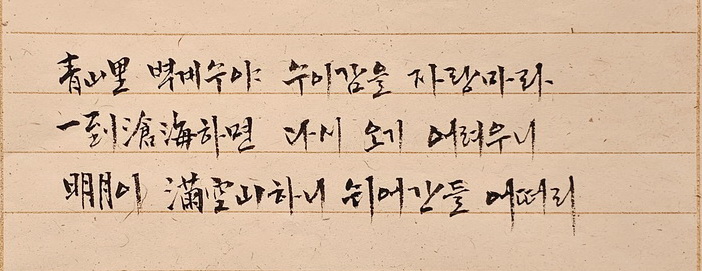 青山里 벽계수야 수이감을 자랑마라
一到滄海하면 다시 오기 어려우니
明月이 滿空山하니 쉬어간들 어떠리